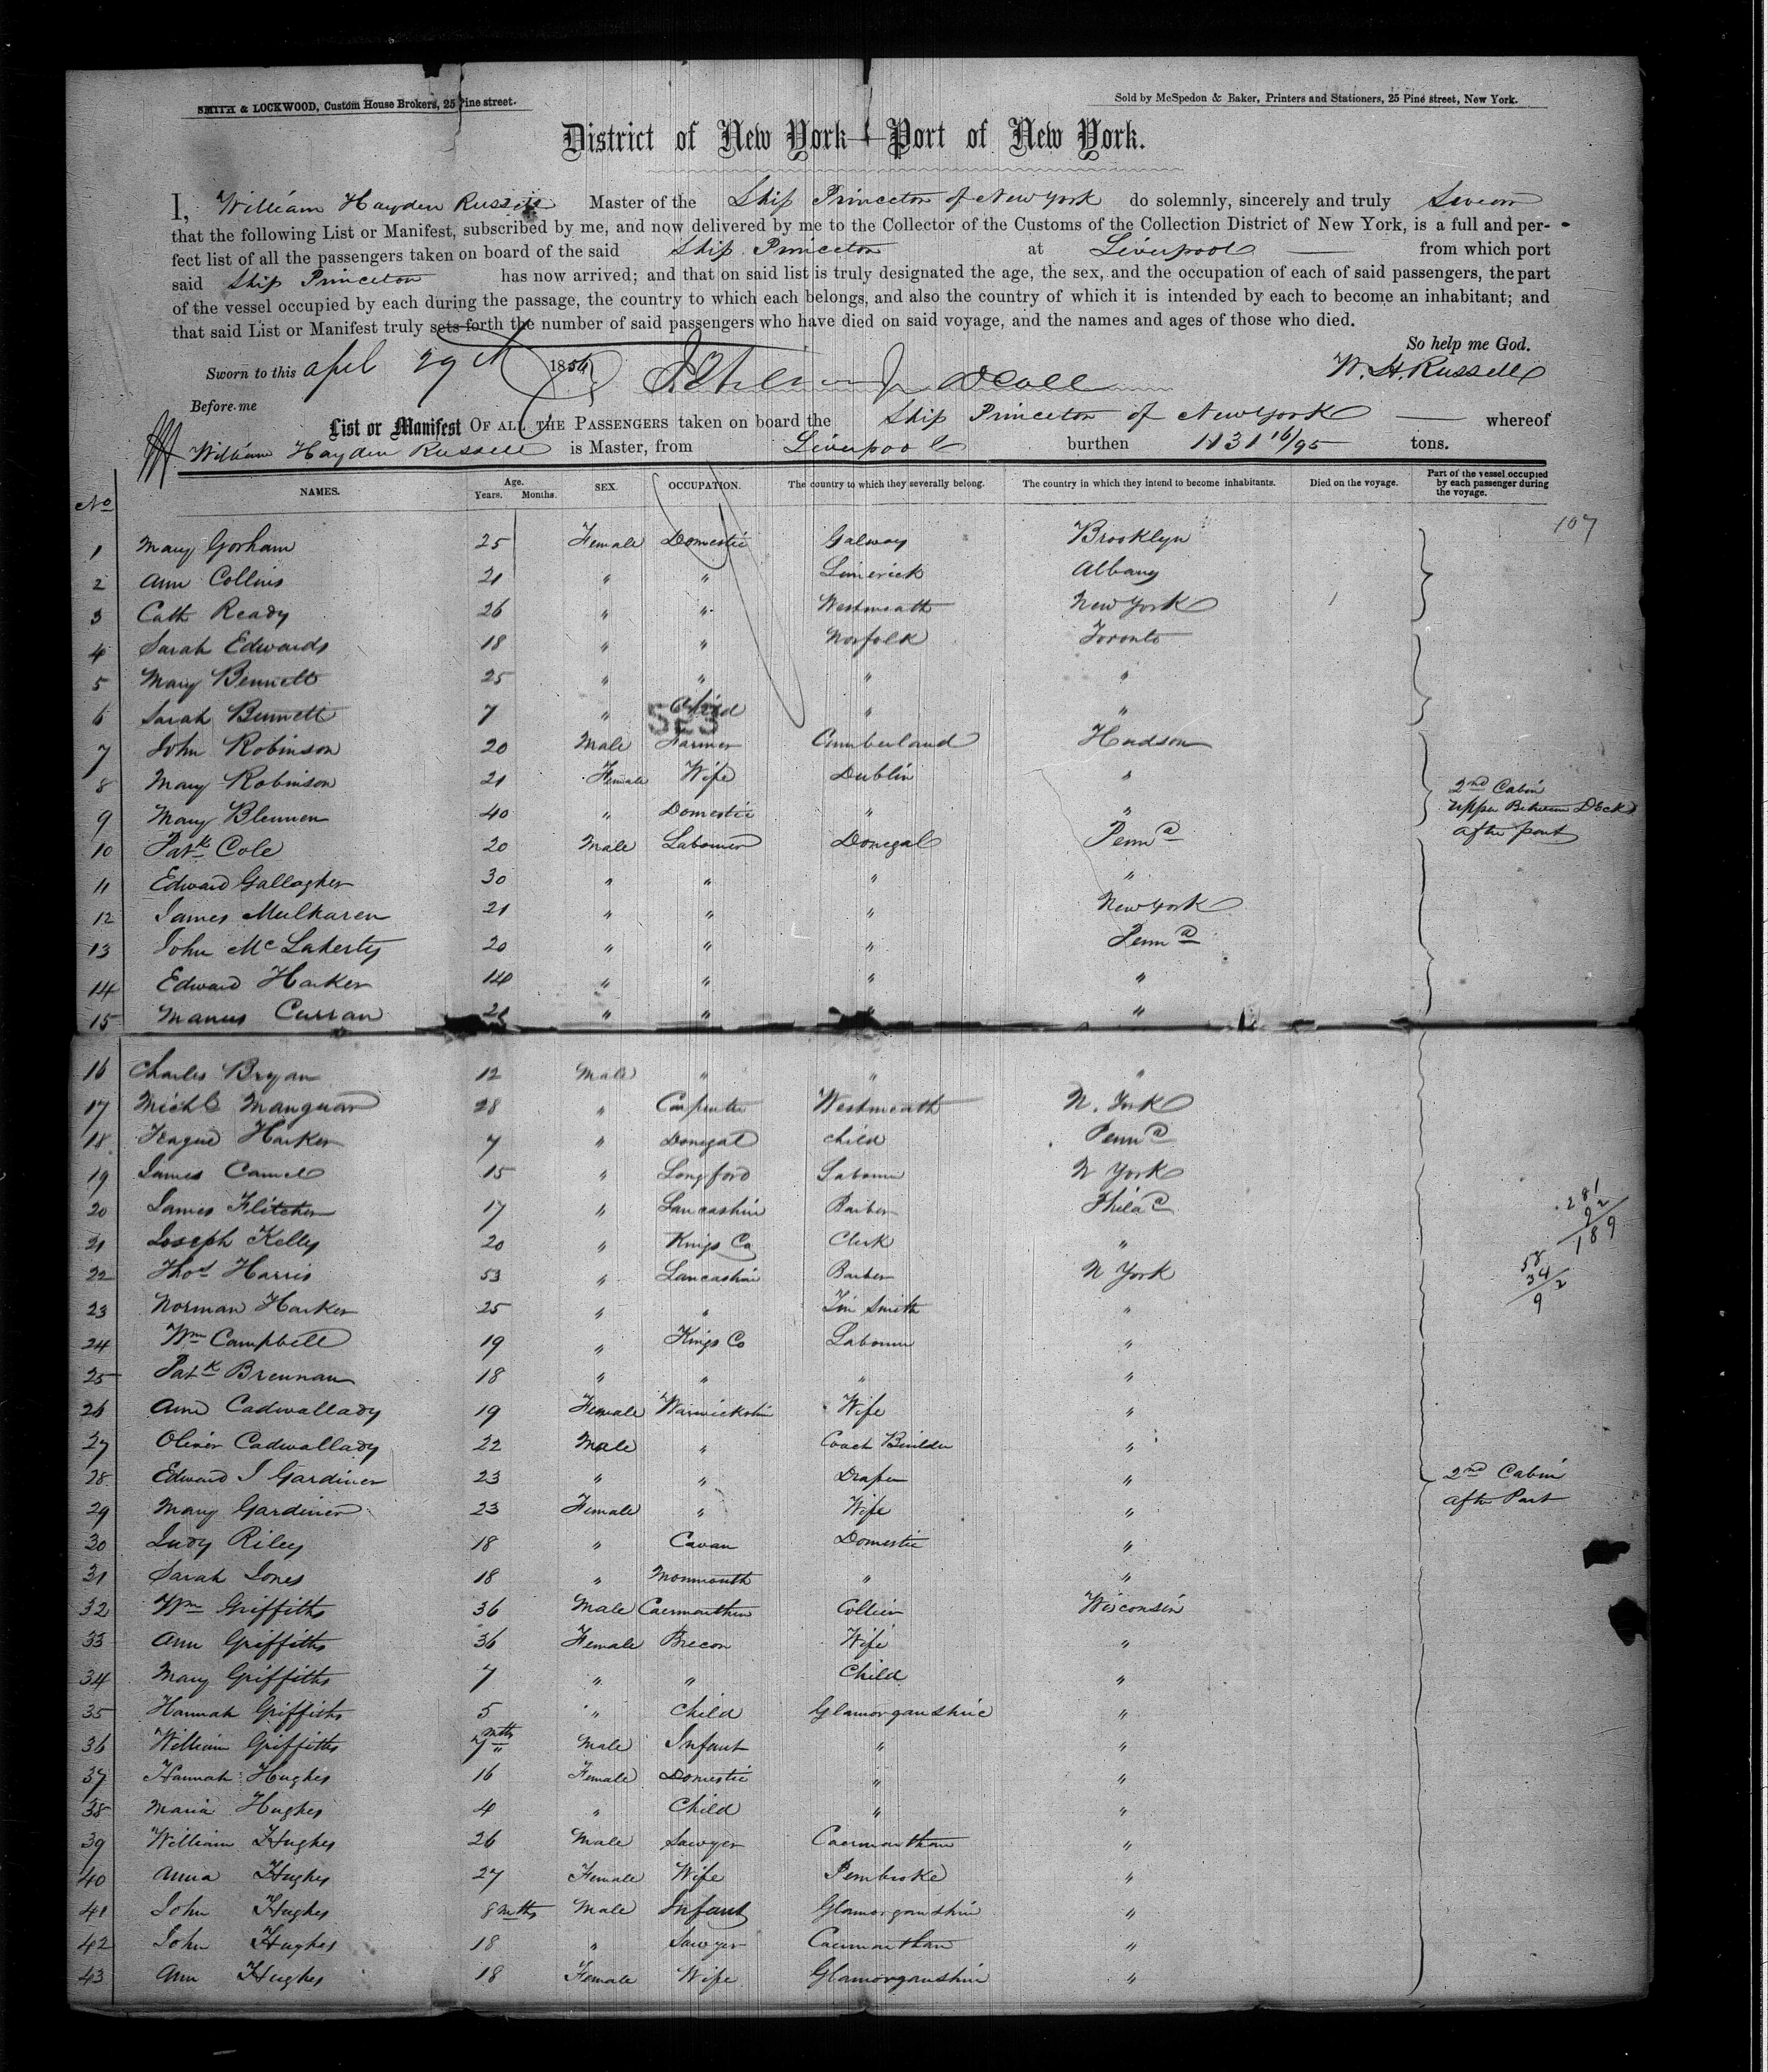 SMITH & LOCKWOOD, Custom House Brokers, 25 Pine street.
Sold by McSpedon & Baker, Printers and Stationers, 25 Pine street, New York.
District of New York - Port of New York.
I, William Hayden Russell Master of the Ship Princeton of New York do solemnly, sincerely and truly Swear
that the following List or Manifest, subscribed by me, and now delivered by me to the Collector of the Customs of the Collection District of New York, is a full and per-
fect list of all the passengers taken on board of the said Ship Princeton at Liverpool from which port
said Ship Princeton has now arrived; and that on said list is truly designated the age, the sex, and the occupation of each of said passengers, the part
of the vessel occupied by each during the passage, the country to which each belongs, and also the country of which it is intended by each to become an inhabitant; and
that said List or Manifest truly sets forth the number of said passengers who have died on said voyage, and the names and ages of those who died.
So help me God.
Sworn to this April 29th 1854 W. H. Russell
Before me
List or Manifest OF ALL THE PASSENGERS taken on board the Ship Princeton of New York whereof
William Hayden Russell is Master, from Liverpool burthen 1131 16/95 tons.
No NAMES. Age. Years. Months. SEX. OCCUPATION. The country to which they severally belong. The country in which they intend to become inhabitants. Died on the voyage. Part of the vessel occupied by each passenger during the voyage.
107
1 Mary Gorham 25 Female Domestic Galway Brooklyn
2 Ann Collins 21 " " Limerick Albany
3 Cath Ready 26 " " Westmeath New York
4 Sarah Edwards 18 " " Norfolk Toronto
5 Mary Bennett 25 " " " "
6 Sarah Bennett 7 " Child " "
523
7 John Robinson 20 Male Farmer Cumberland Hudson
8 Mary Robinson 21 Female Wife Dublin " 2nd Cabin
9 Mary Blennen 40 " Domestic " " Upper Between Deck
10 Patk Cole 20 Male Labourer Donegal Penna after part
11 Edward Gallagher 30 " " " "
12 James Mulharen 21 " " " New York
13 John McLaherty 20 " " " Penna
14 Edward Harker 14 " " " "
15 Manus Curran 21 " " " "
16 Charles Bryan 12 Male " " "
17 Michl Manguan 28 " Carpenter Westmeath N. York
18 Teague Harker 7 " Donegal Child Penna
19 James Camel 15 " Longford Labourer N York
20 James Flitcher 17 " Lancashire Barber Phila
21 Joseph Kelly 20 " Kings Co Clerk "
22 Thos Harris 53 " Lancashire Barber N York
23 Norman Harker 25 " " Tin Smith "
24 Wm Campbell 19 " Kings Co Labourer "
25 Patk Brennan 18 " " " "
26 Ann Cadwallady 19 Female Warwickshire Wife "
27 Oliver Cadwallady 22 Male " Coach Builder "
28 Edward J Gardiner 23 " " Draper " 2nd Cabin
29 Mary Gardiner 23 Female " Wife " after Part
30 Judy Riley 18 " Cavan Domestic "
31 Sarah Jones 18 " Monmouth " "
32 Wm Griffiths 36 Male Caermarthen Collier Wisconsin
33 Ann Griffiths 36 Female Brecon Wife "
34 Mary Griffiths 7 " " Child "
35 Hannah Griffiths 5 " Child Glamorganshire "
36 William Griffiths 7 mths Male Infant " "
37 Hannah Hughes 16 Female Domestic " "
38 Maria Hughes 4 " Child " "
39 William Hughes 26 Male Sawyer Caermarthan "
40 Anna Hughes 27 Female Wife Pembroke "
41 John Hughes 8 mths Male Infant Glamorganshire "
42 John Hughes 18 " Sawyer Caermarthan "
43 Ann Hughes 18 Female Wife Glamorganshire "